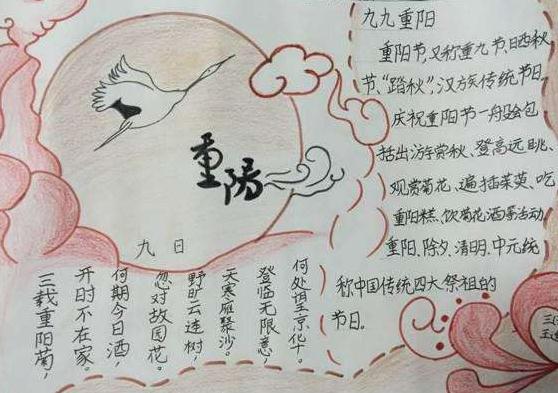 重阳
九九重阳
重阳节,又称重九节、晒秋
节、“踏秋”,汉族传统节日。
庆祝重阳节一般会包
括出游赏秋、登高远眺、
观赏菊花、遍插茱萸、吃
重阳糕、饮菊花酒等活动
重阳、除夕、清明、中元统
称中国传统四大祭祖的
节日。
九日
三载重阳菊,
开时不在家。
何期今日酒,
忽对故园花。
野旷云连树,
天寒雁聚沙。
登临无限意,
何处望京华。